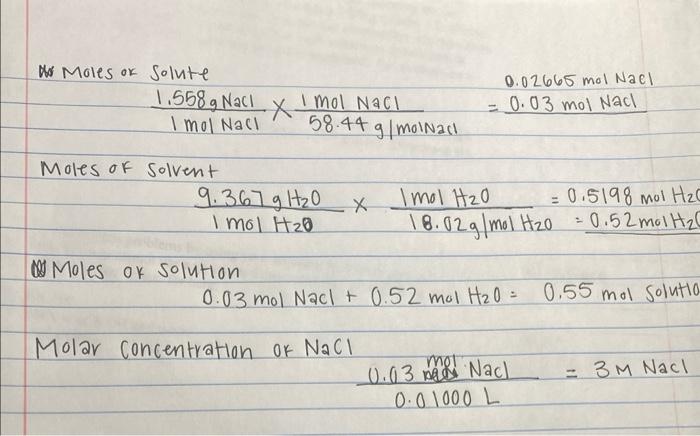 Moles of Solute
1.558 g NaCl / 1 mol NaCl × 1 mol NaCl / 58.44 g/mol NaCl = 0.02665 mol NaCl
= 0.03 mol NaCl
Moles of Solvent
9.367 g H2O / 1 mol H2O × 1 mol H2O / 18.02 g/mol H2O = 0.5198 mol H2O
= 0.52 mol H2O
Moles of Solution
0.03 mol NaCl + 0.52 mol H2O = 0.55 mol Solutio
Molar Concentration of NaCl
0.03 mol NaCl / 0.01000 L = 3 M NaCl